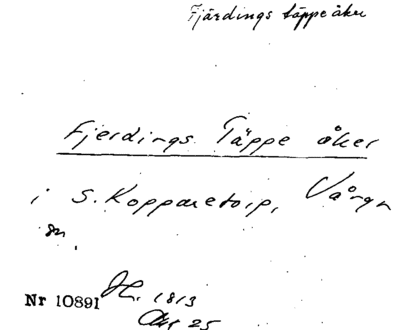 Fjärdings täppe åker
Fjerdings Täppe åker
i S. Kopparetorp, Vårgn
sn.
Nr 10891 JH. 1813
Akt 25